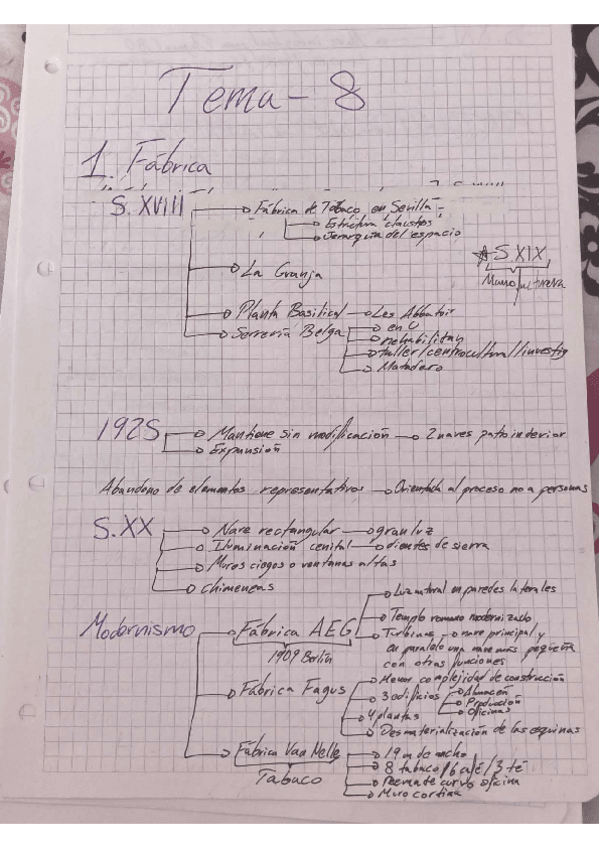 Tema - 8
1. Fábrica
S. XVIII
Fábrica de Tabaco en Sevilla
Estructura claustros
Jerarquía del espacio
La Granja
* S. XIX
Manufacturera
Planta Basilical Les Abbatoir
Serrería Belga en U
rehabilitan
taller/centro cultural/investig
Matadero
1925 Mantiene sin modificación 2 naves patio interior
Expansión
Abandono de elementos representativos Orientada al proceso no a personas
S. XX Nave rectangular gran luz
Iluminación cenital dientes de sierra
Muros ciegos o ventanas altas
chimeneas
Modernismo
Fábrica AEG
1909 Berlín
Luz natural en paredes laterales
Templo romano modernizado
Turbinas nave principal y
en paralelo una nave más pequeña
con otras funciones
Fábrica Fagus
Menor complejidad de construcción
3 edificios Almacén
Producción
Oficinas
4 plantas
Desmaterialización de las esquinas
Fábrica Van Nelle
Tabaco
19 m de ancho
8 tabaco/6 café/3 té
Remate curvo oficina
Muro cortina